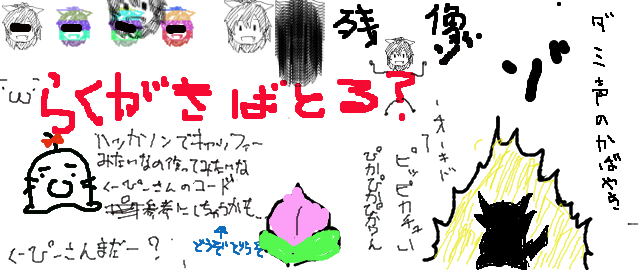 残像
ゾ
ダミ声のかばやき
´・ω・`
らくがきばとる?
ハッカソンでキャッフィー
みたいなの作ってみたいな
くーぴーさんのコード
参考にしちゃうかも
くーぴーさんまだー?
どうぞどうぞ
オーキド
ピッピカチュい
ぴかぴかぴかりん